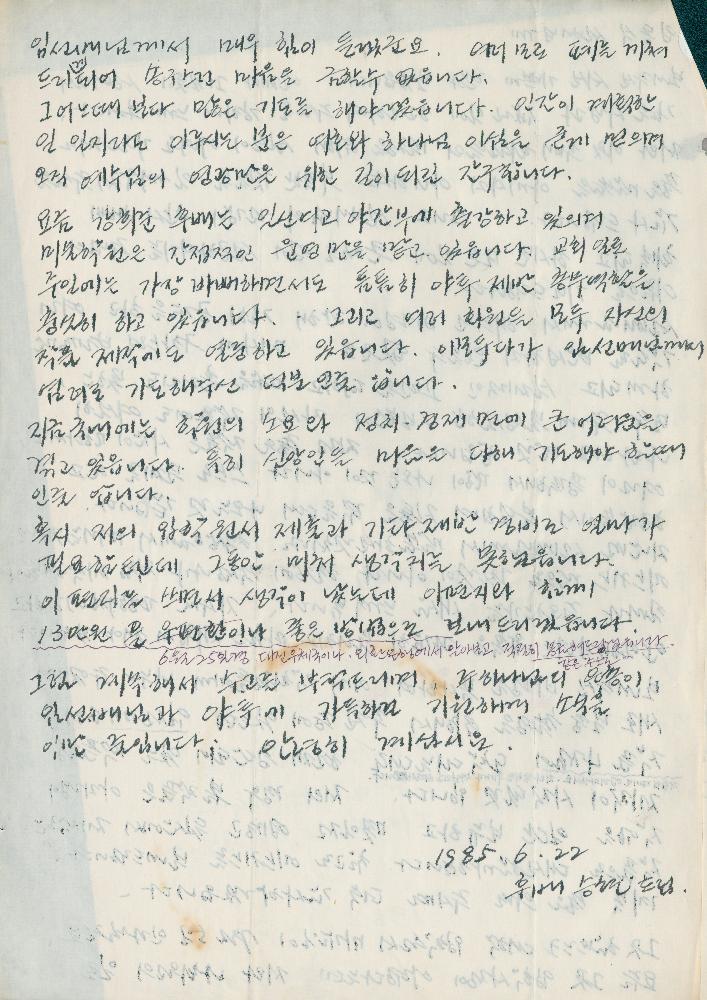 임선배님께서 매우 힘이 들겠군요. 여러모로 폐를 끼쳐
드리게 되어 송구스런 마음을 금할수 없읍니다.
그어느때 보다 많은 기도를 해야겠읍니다. 인간이 계획한
일 일지라도 이루시는 분은 여호와 하나님 이심을 굳게 믿으며
오직 예수님의 영광만을 위한 길이 되길 간구합니다.
요즘 강희준 후배는 일신여고 야간부에 출강하고 있으며
미술학원은 간접적인 운영만을 맡고 있읍니다. 교회 일로
주일에는 가장 바빠하면서도 틈틈히 야투 제반 총무역할을
충실히 하고 있읍니다. 그리고 여러 회원들 모두 자신의
작품 제작에도 열중하고 있읍니다. 이모두다가 임선배님께서
염려로 기도해주신 덕분 인줄 압니다.
지금 국내에는 학원의 소요와 정치.경제 면에 큰 어려움을
겪고 있읍니다. 특히 신앙인들 마음을 다해 기도해야 할때
인줄 압니다.
혹시 저의 입학 원서 제출과 기타 제반 경비로 얼마가
필요할텐데 그동안 미처 생각지를 못했읍니다.
이 편지를 쓰면서 생각이 났는데 이편지와 함께
13만원 을 우편환이나 좋은 방법으로 보내드리겠읍니다.
6월 25일경 대전우체국이나, 외환은행에서 알아보고,
그럼 계속해서 수고를 부탁드리며, 주 하나님의 은총이
임선배님과 야투에, 가득하길 기원하며 소식을
이만 줄입니다. 안녕히 계십시요.
1985. 6. 22
후배 승현 드림.